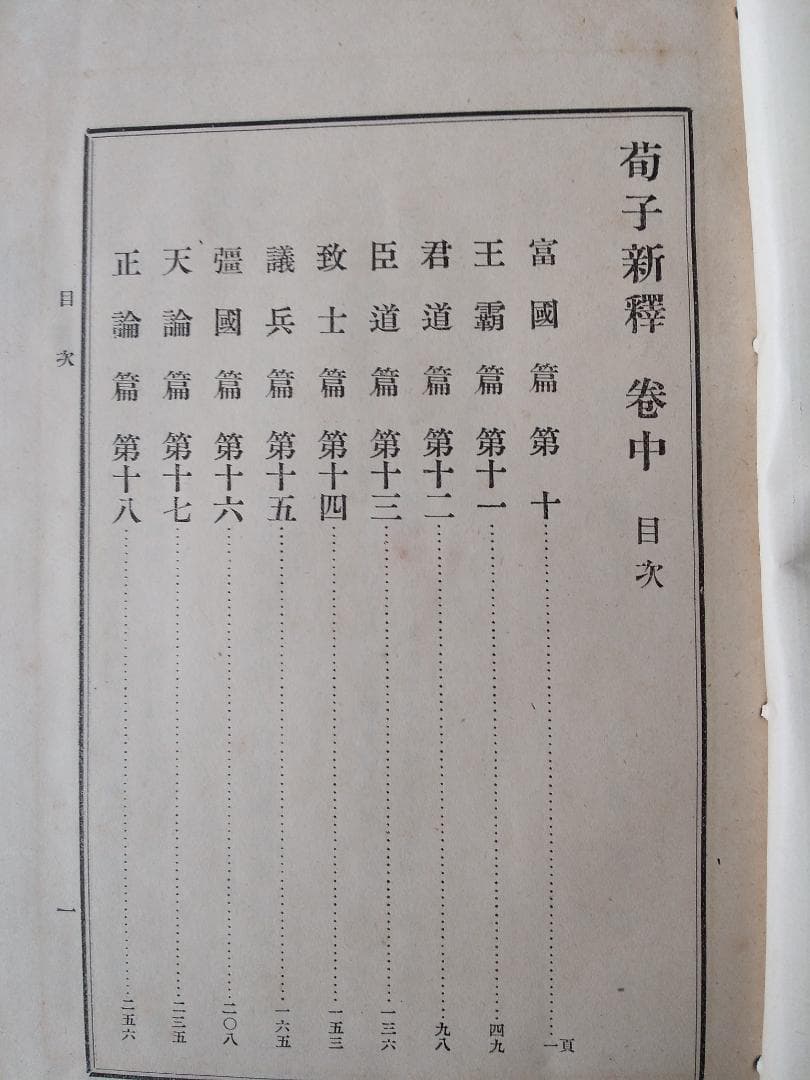 荀子新釋 卷中 目次
富國篇第十……一頁
王霸篇第十一……四九
君道篇第十二……九八
臣道篇第十三……一三六
致士篇第十四……一五三
議兵篇第十五……一六五
彊國篇第十六……二〇八
天論篇第十七……二三五
正論篇第十八……二五六
目次 一